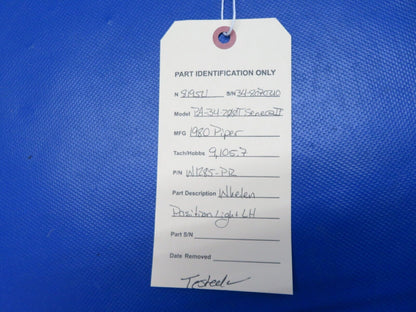 PART IDENTIFICATION ONLY
N 8195U S/N 34-8070240
Model PA-34-200T Seneca II
MFG 1980 Piper
Tach/Hobbs 9,105.7
P/N W1285-PR
Part Description Whelen
Position Light LH
Part S/N
Date Removed
Tested